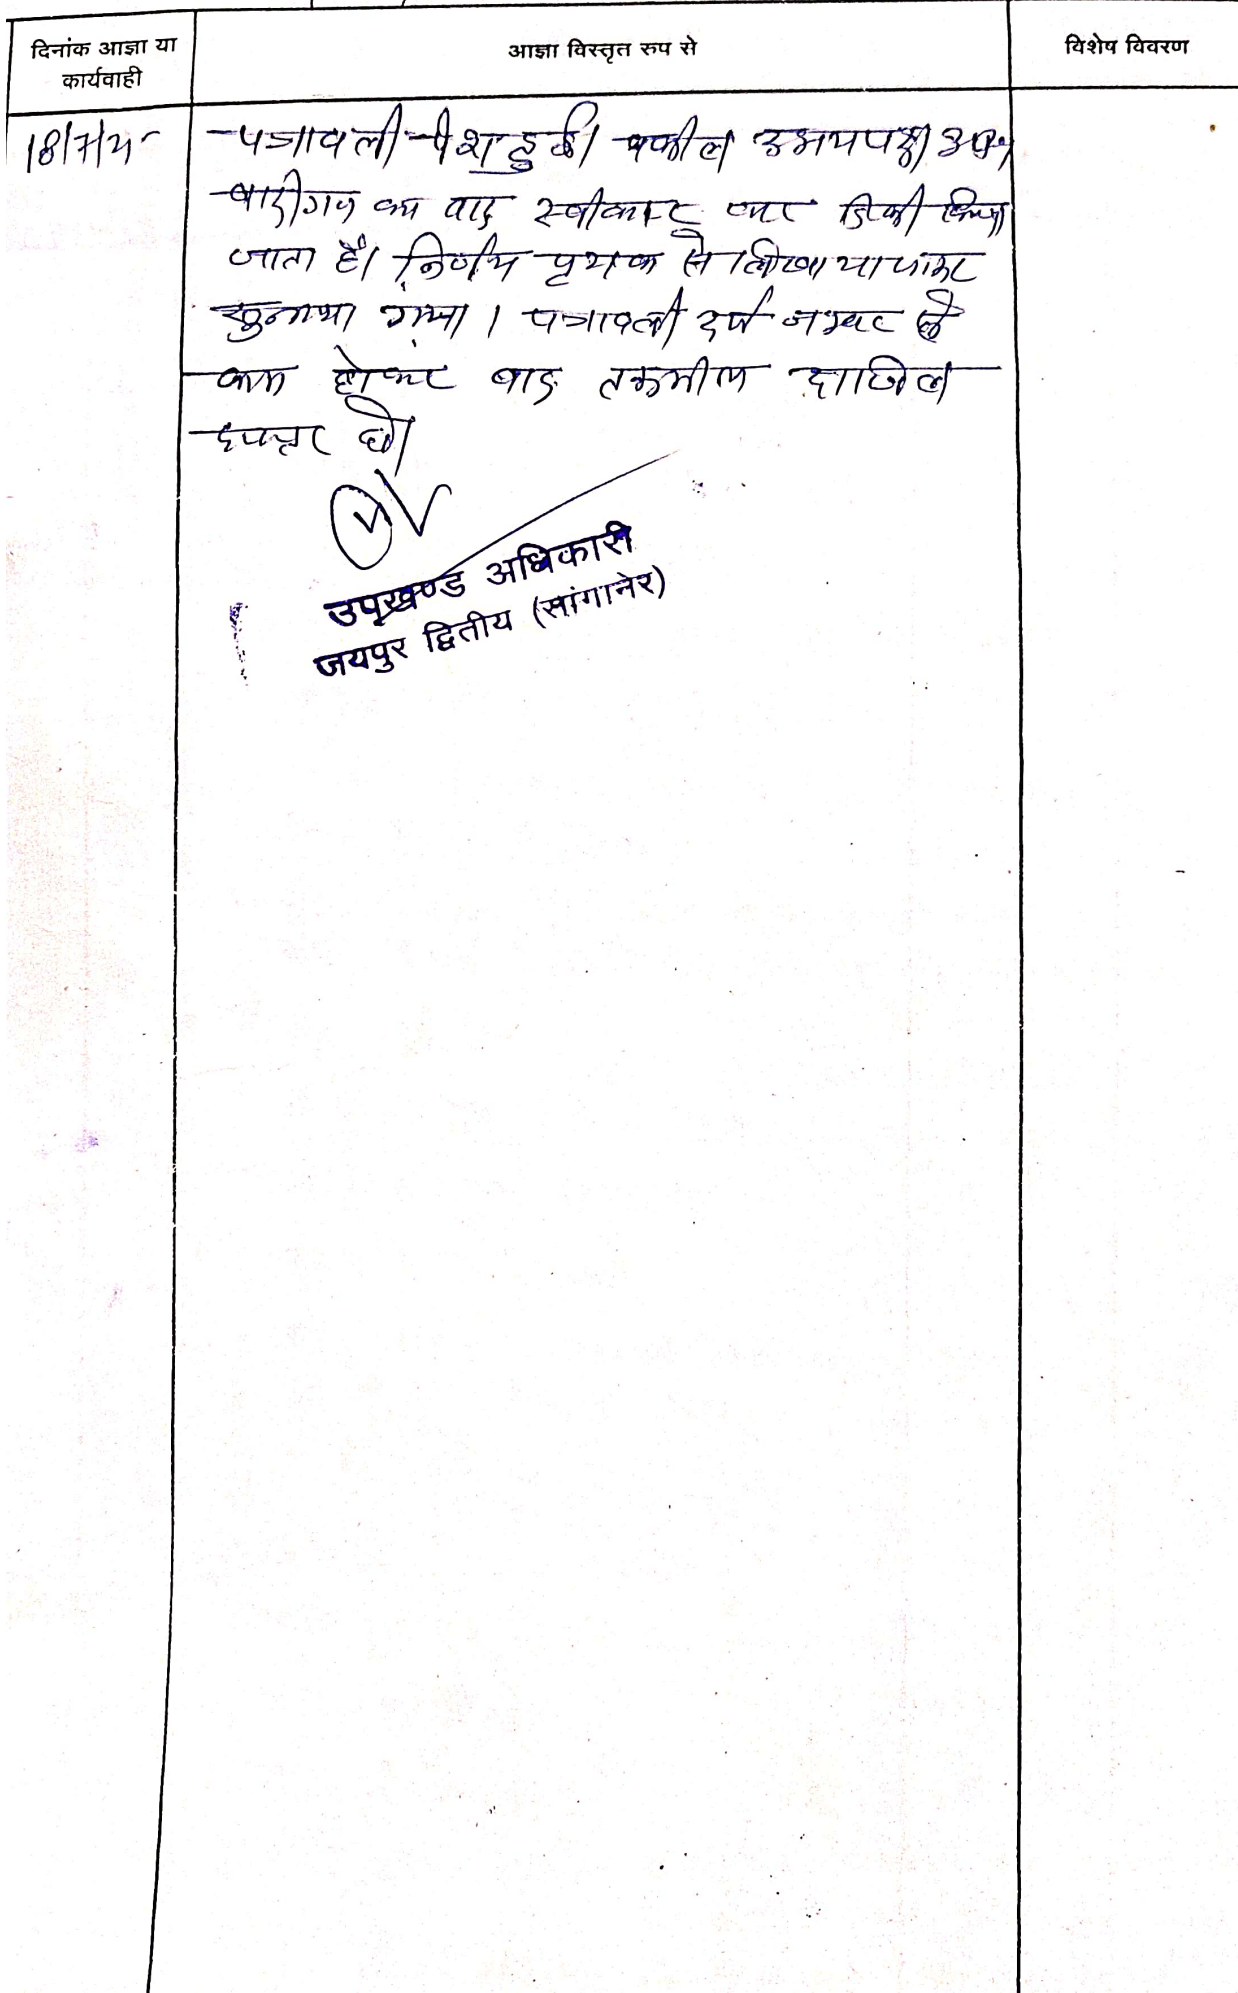 दिनांक आज्ञा या
कार्यवाही
आज्ञा विस्तृत रुप से
विशेष विवरण
18/7/25
पत्रावली पेश हुई। वकील उभयपक्ष उप०
वादीगण का वाद स्वीकार कर डिक्री किया
जाता है। निर्णय पृथक से लिखाया जाकर
सुनाया गया। पत्रावली दर्ज नम्बर से
कम होकर बाद तकमील दाखिल
दफ्तर हो।
उपखण्ड अधिकारी
जयपुर द्वितीय (सांगानेर)